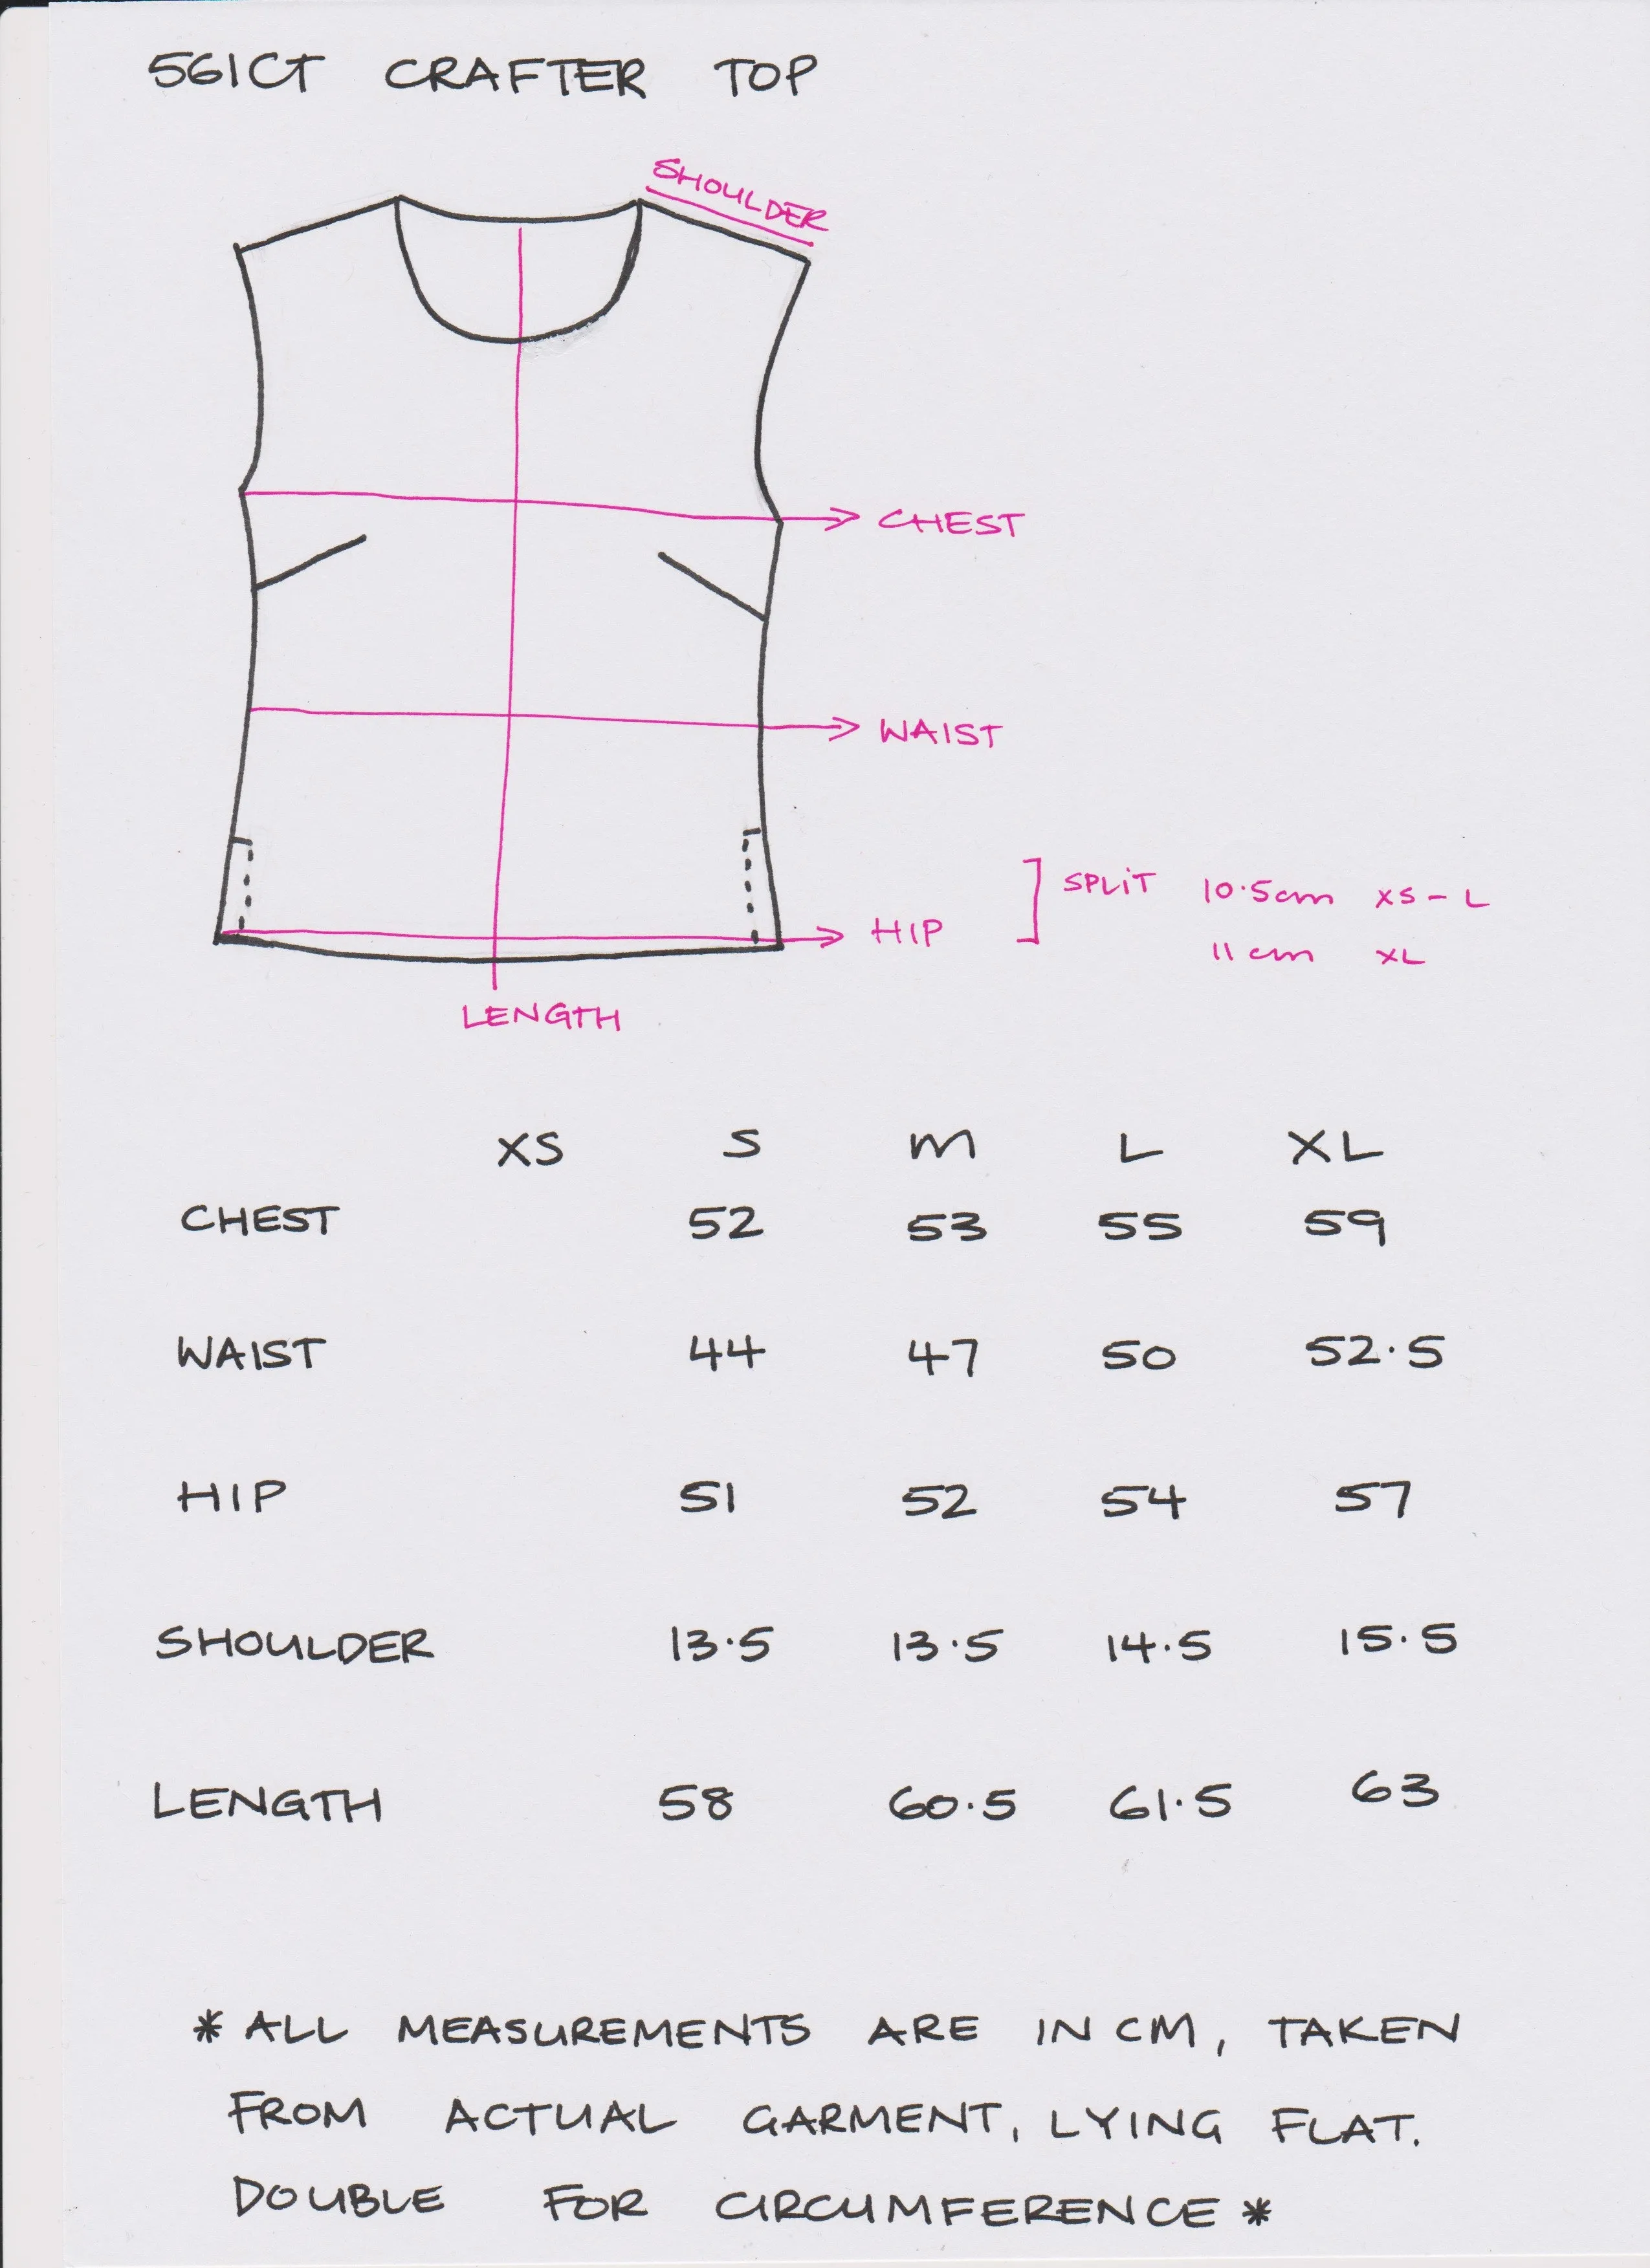 561CT CRAFTER TOP
SHOULDER
CHEST
WAIST
SPLIT 10.5cm XS - L
HIP
11 cm XL
LENGTH
XS S M L XL
CHEST 52 53 55 59
WAIST 44 47 50 52.5
HIP 51 52 54 57
SHOULDER 13.5 13.5 14.5 15.5
LENGTH 58 60.5 61.5 63
* ALL MEASUREMENTS ARE IN CM, TAKEN
FROM ACTUAL GARMENT, LYING FLAT.
DOUBLE FOR CIRCUMFERENCE *